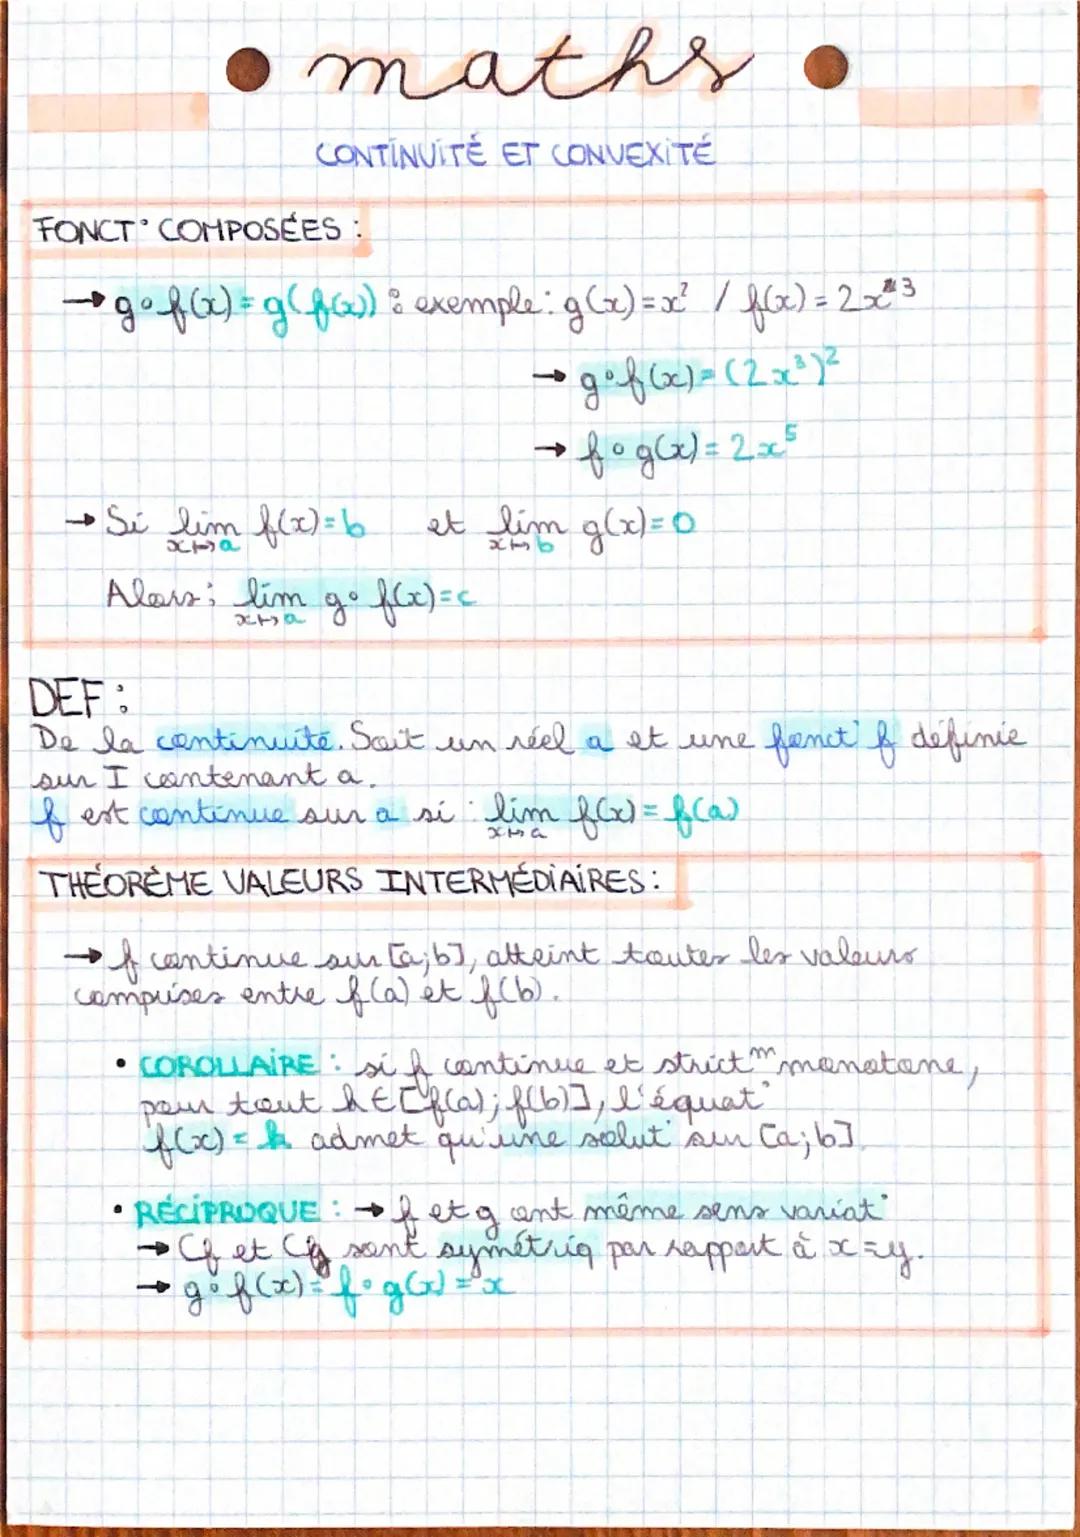 maths
CONTINUITÉ ET CONVEXITÉ
FONCT° COMPOSÉES :
→ g∘f(x) = g(f(x)) : exemple : g(x) = x² / f(x) = 2x³
→ g∘f(x) = (2x³)²
→ f∘g(x) = 2x⁵
→ Si lim f(x) = b et lim g(x) = 0
x↦a x↦b
Alors : lim g∘f(x) = c
x↦a
DEF :
De la continuité. Soit un réel a et une fonct° f définie
sur I contenant a.
f est continue sur a si : lim f(x) = f(a)
x↦a
THÉORÈME VALEURS INTERMÉDIAIRES :
→ f continue sur [a;b], atteint toutes les valeurs
comprises entre f(a) et f(b).
• COROLLAIRE : si f continue et strictᵐ monotone,
pour tout k ∈ [f(a); f(b)], l'équat°
f(x) = k admet qu'une solut° sur [a;b].
• RÉCIPROQUE : → f et g ont même sens variat°
→ Cf et Cg sont symétriq par rapport à x=y.
→ g∘f(x) = f∘g(x) = x